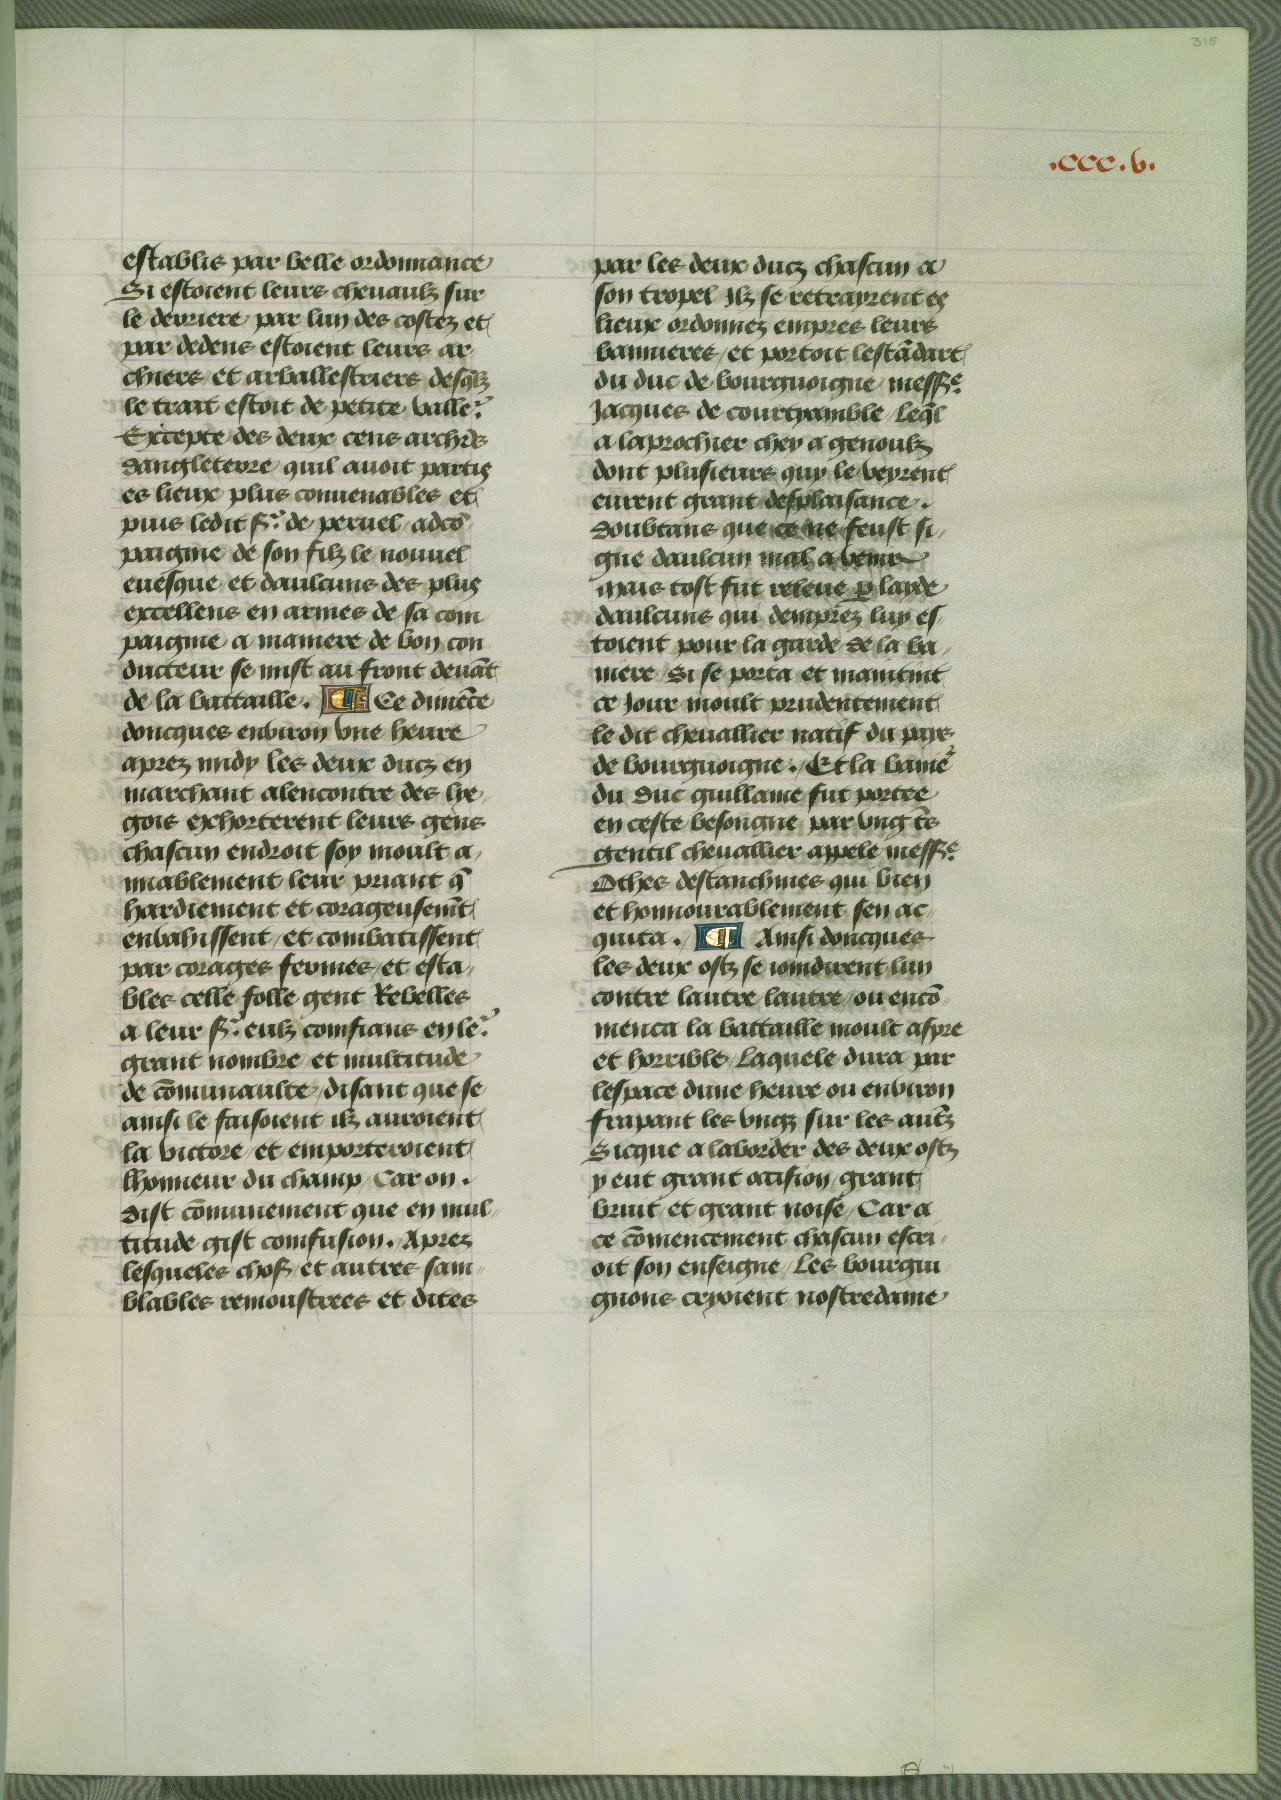 315
.ccc.v.
establis par belle ordonnance
Si estoient leurs cheuaulz sur
le derriere par lun des costez et
par dedens estoient leurs ar
chiers et arballestriers desq̃lz
le trait estoit de petite valler̃
Excepte des deux cens archiẽs
dangleterre quil auoit partis
es lieux plus conuenables et
puis ledit sr̃ de peruel adcõ
paigne de son filz le nouuel
euesque et daulcuns des plus
excellens en armes de sa com
paignie a maniere de bon con
ducteur se mist au front deuãt
de la battaille. ¶ Ce dimẽce
doncques enuiron vne heure
aprez midy les deux ducz en
marchant alencontre des lie,
gois exhorterent leurs gens
chascun endroit soy moult a,
miablement leur priant q̃
hardiement et corageusemẽt
enuahissent / et combatissent
par corages fermes / et esta,
bles celle folle gent Rebelles
a leur sr̃ eulz comfians en ler̃
grant nombre / et multitude
de cõmunaulte / disant que se
ainsi le faisoient ilz auroient
la victore / et emporteroient
lhonneur du champ / Car on.
dist cõmunement que en mul,
titude gist comfusion. / Aprez
lesqueles chos̃ / et autres sam,
blables remoustrees et dites
par les deux ducz chascun a
son tropel Ilz se retrayrent es
lieux ordonnez empres leurs
bannieres / et portoit lestãdart
du duc de bourguoigne / messr̃e
Jacques de courtyamble / leq̃l
a laprochier chey a genoulz
dont plusieurs quy le veyrent
eurent grant desplaisance.
doubtans que ce ne feust si,
gne daulcun mal a venir
mais tost fut releue ꝑ layde
daulcuns qui demprez luy es,
toient pour la garde de la ba,
niere / Si se porta et maintint
ce Jour moult prudentement
le dit cheuallier natif du pays
de bourguoigne. / Et la baniẽr
du duc guillame fut portee
en ceste besongne par vng tẽs
gentil cheuallier appele messr̃e
Othes destanchines qui bien
et honnourablement sen ac,
quita. / ¶ Ainsi doncques
les deux ostz se ioindirent lun
contre lautre lautre / ou encõ,
menca la battaille moult aspre
et horrible / Laquele dura par
lespace dune heure ou enuiron
frapant les vngz sur les autẽz
Sicque a laborder des deux ostz
y eut grant occision / grant
bruit et grant noise / Car a
ce cõmencement chascun escri,
oit son enseigne / Les bourgui,
gnons cryoient nostredame